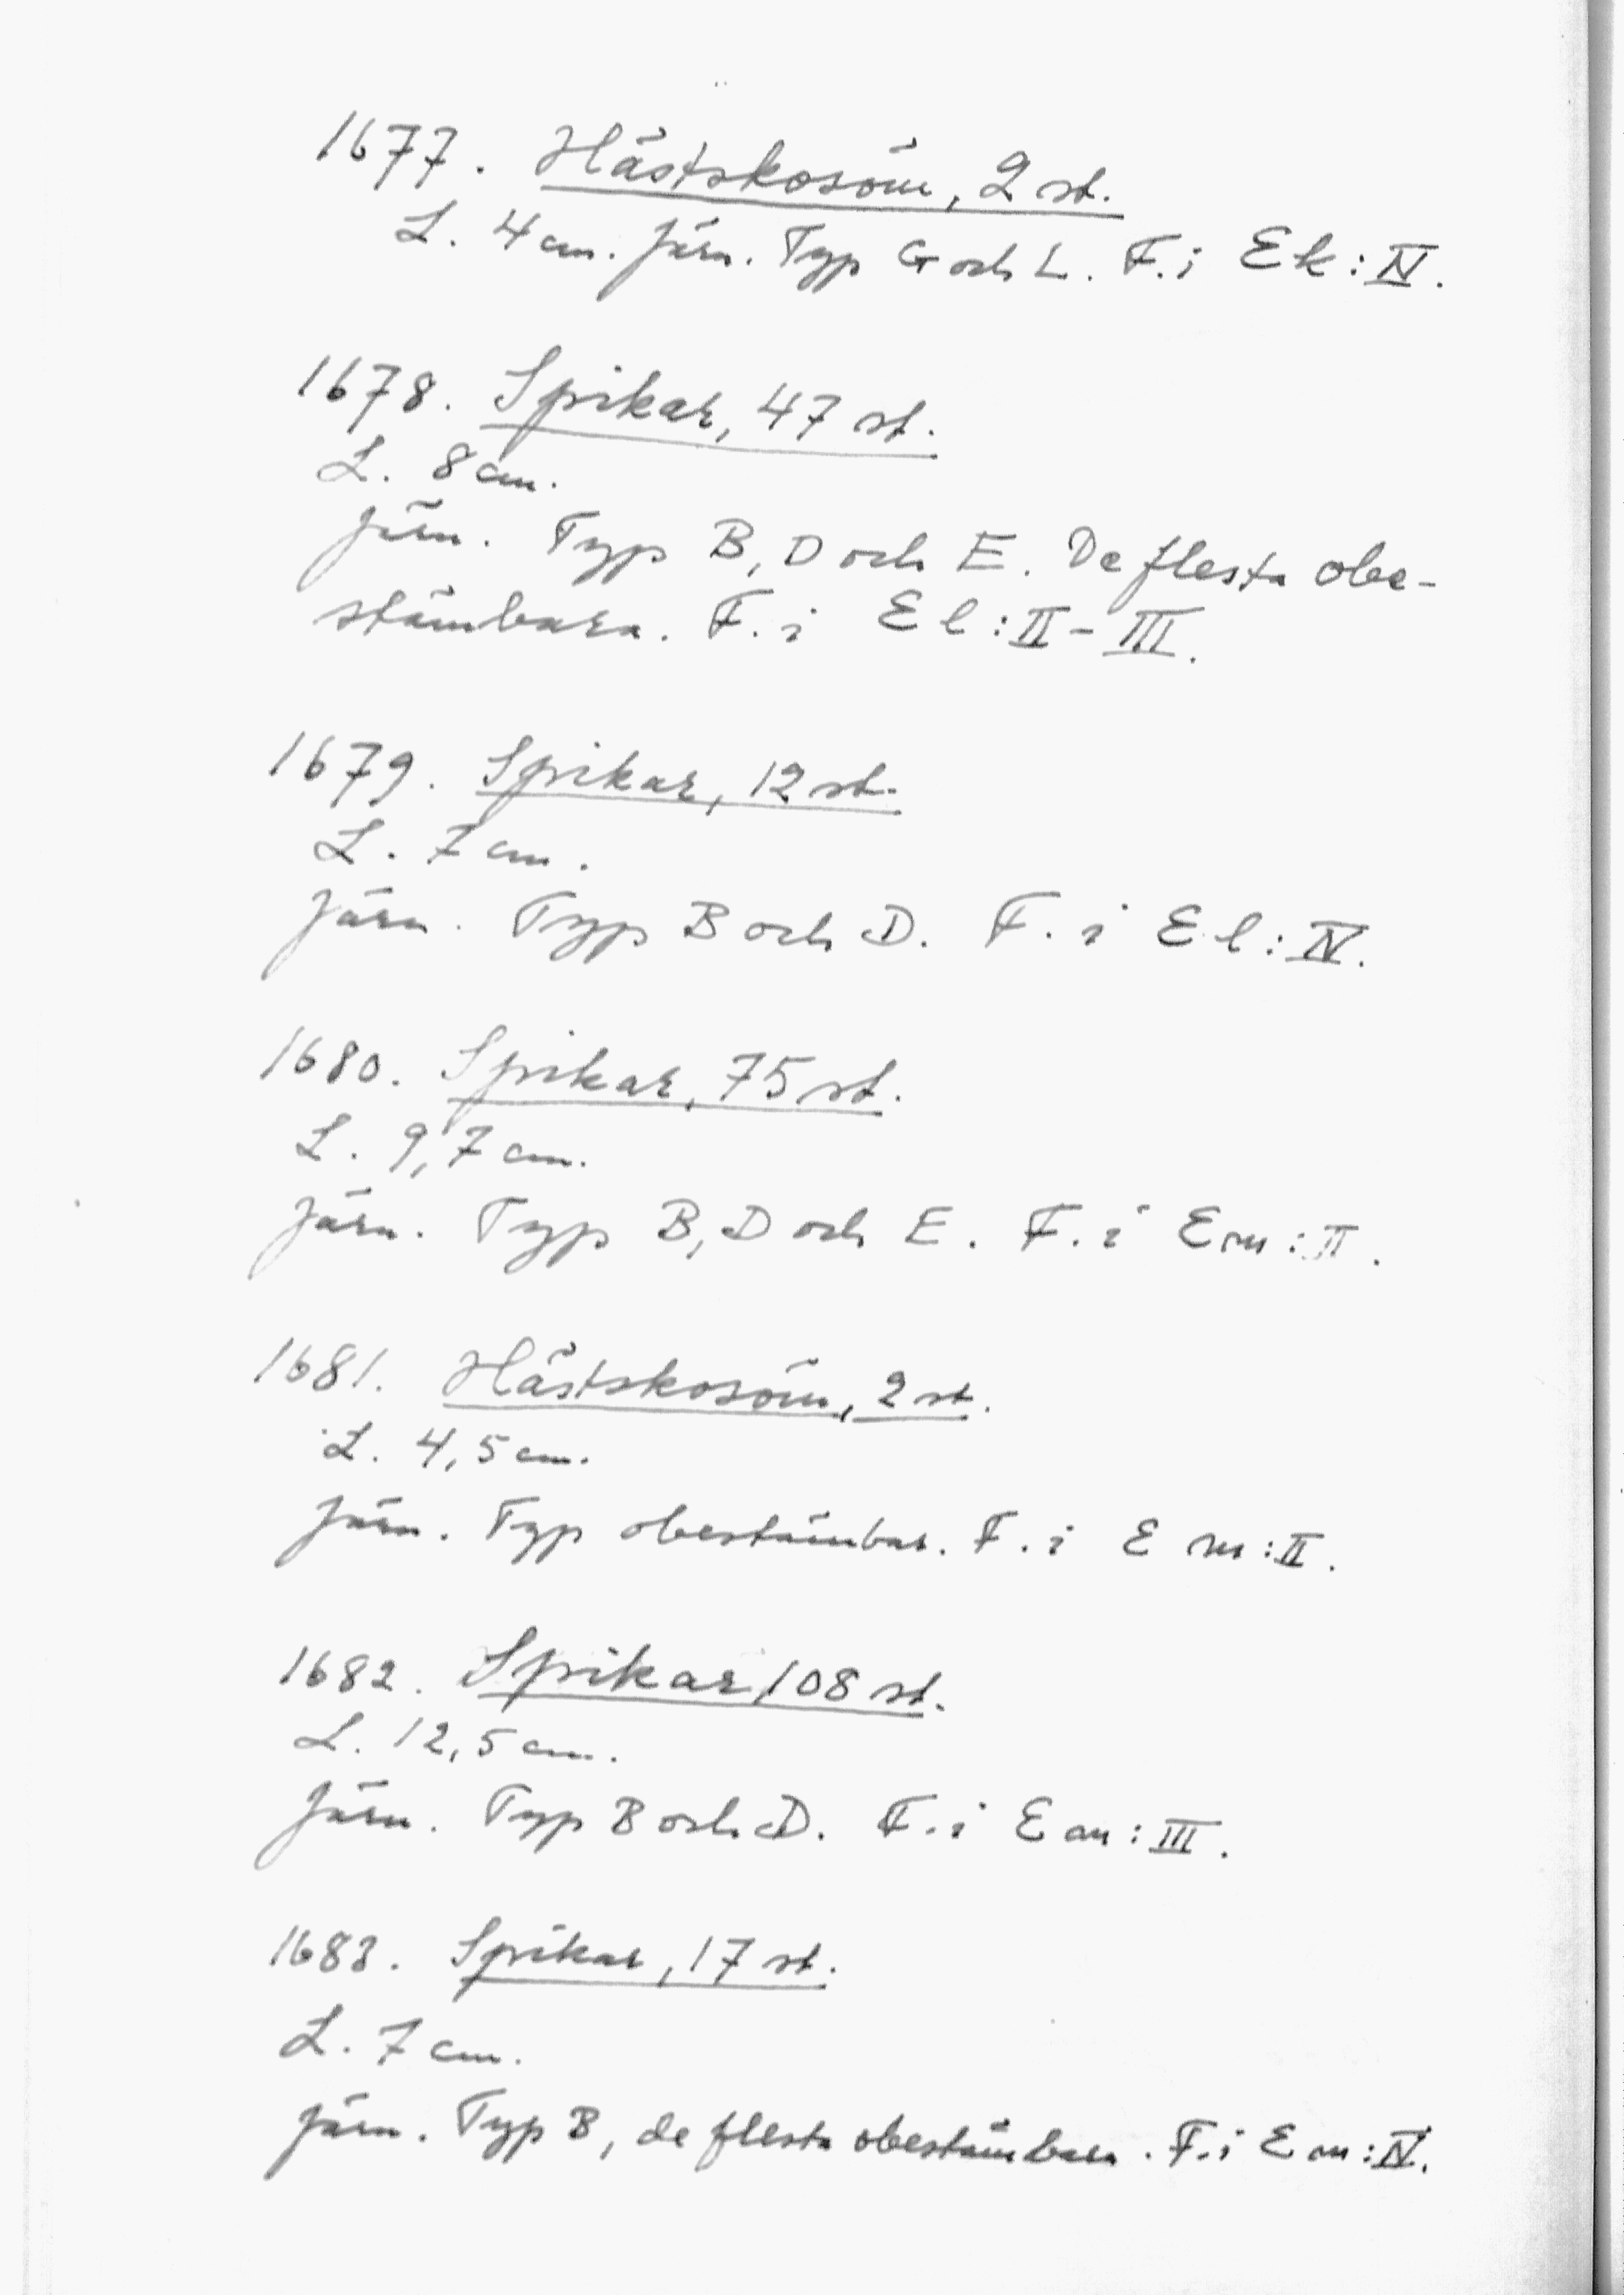 1677. Hästskosöm, 2 st.
L. 4 cm. Järn. Typ G och L. F. i Ek: IV.
1678. Spikar, 47 st.
L. 8 cm.
Järn. Typ B, D och E. De flesta obe-
stämbara. F. i El: II - III.
1679. Spikar, 12 st.
L. 7 cm.
Järn. Typ B och D. F. i El: IV.
1680. Spikar, 75 st.
L. 9,7 cm.
Järn. Typ B, D och E. F. i Em: II.
1681. Hästskosöm, 2 st.
L. 4,5 cm.
Järn. Typ obestämbar. F. i Em: II.
1682. Spikar 108 st.
L. 12,5 cm.
Järn. Typ B och D. F. i Em: III.
1683. Spikar, 17 st.
L. 7 cm.
Järn. Typ B, de flesta obestämbara. F. i Em: IV.